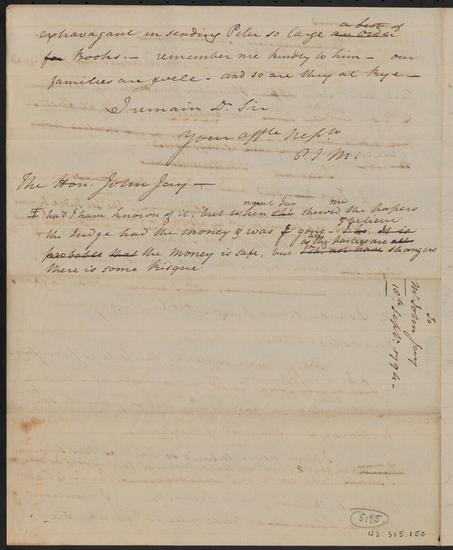 a list of
extravagant in sending Peter so large an order
for Books.— remember me kindly to him— our
families are well— and so are they at Rye—
I remain Dr. Sir
Your affte. Nephw
P. J M:
The Hon. John Jay—
Peter Jay me
I had I have known of it, but when shewed the papers
I believe
the Judge had the money & was gone
as the parties are all
probable that the money is safe, but have strangers
there is some Risque
To
Mr. John Jay
10th. Sept. 1794—
5195
42.315.150